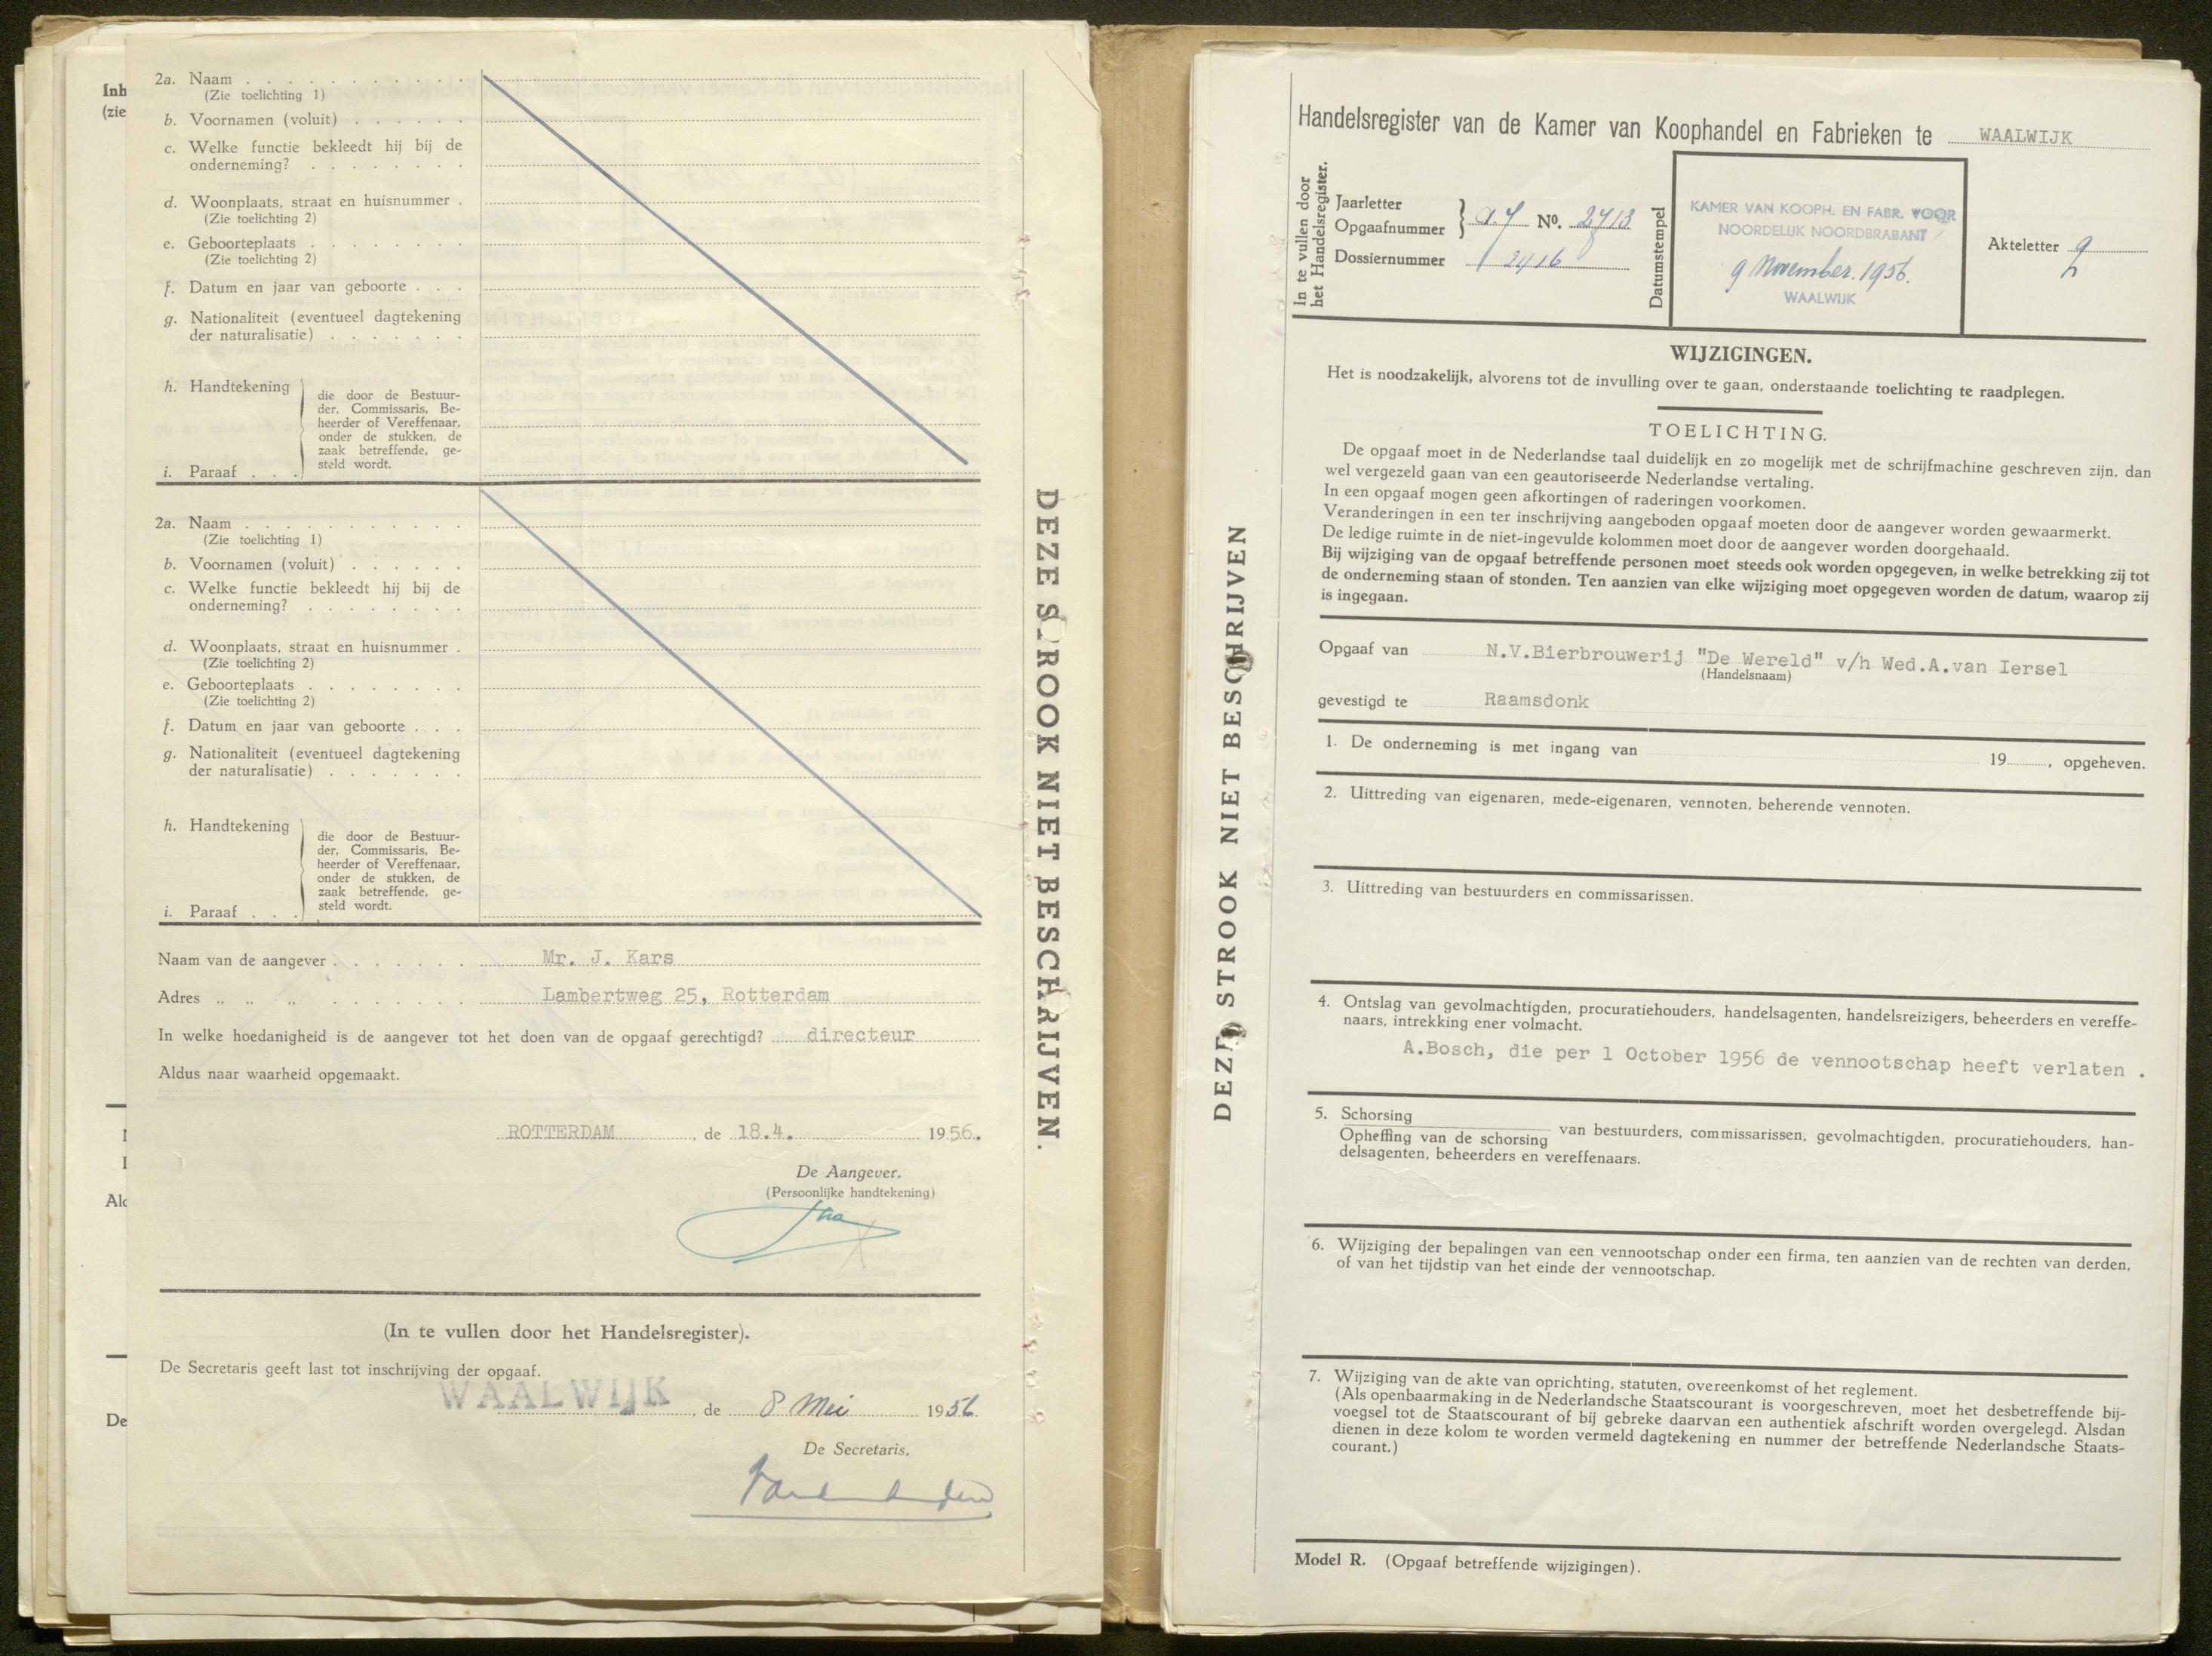 Inh
(zie
2a. Naam . . . . . . . . . . .
(Zie toelichting 1)
b. Voornamen (voluit) . . . . . .
c. Welke functie bekleedt hij bij de
onderneming? . . . . . . . .
d. Woonplaats, straat en huisnummer .
(Zie toelichting 2)
e. Geboorteplaats . . . . . . . .
(Zie toelichting 2)
f. Datum en jaar van geboorte . . .
g. Nationaliteit (eventueel dagtekening
der naturalisatie) . . . . . . .
h. Handtekening
die door de Bestuur-
der, Commissaris, Be-
heerder of Vereffenaar,
onder de stukken, de
zaak betreffende, ge-
steld wordt.
i. Paraaf . . .
2a. Naam . . . . . . . . . . .
(Zie toelichting 1)
b. Voornamen (voluit) . . . . . .
c. Welke functie bekleedt hij bij de
onderneming? . . . . . . . .
d. Woonplaats, straat en huisnummer .
(Zie toelichting 2)
e. Geboorteplaats . . . . . . . .
(Zie toelichting 2)
f. Datum en jaar van geboorte . . .
g. Nationaliteit (eventueel dagtekening
der naturalisatie) . . . . . . .
h. Handtekening
die door de Bestuur-
der, Commissaris, Be-
heerder of Vereffenaar,
onder de stukken, de
zaak betreffende, ge-
steld wordt.
i. Paraaf . . .
Naam van de aangever . . . . . . . Mr. J. Kars
Adres „ „ „ . . . . . . . Lambertweg 25, Rotterdam
In welke hoedanigheid is de aangever tot het doen van de opgaaf gerechtigd? directeur
Aldus naar waarheid opgemaakt.
ROTTERDAM , de 18.4. 1956.
De Aangever,
(Persoonlijke handtekening)
(In te vullen door het Handelsregister).
De Secretaris geeft last tot inschrijving der opgaaf.
WAALWIJK , de 8 Mei 1956
De Secretaris,
DEZE STROOK NIET BESCHRIJVEN.
Ald
De
DEZE STROOK NIET BESCHRIJVEN
Handelsregister van de Kamer van Koophandel en Fabrieken te WAALWIJK
In te vullen door
het Handelsregister.
Jaarletter
Opgaafnummer
No. 2713
Dossiernummer 2416
Datumstempel
KAMER VAN KOOPH. EN FABR. VOOR
NOORDELIJK NOORDBRABANT
9 November. 1956.
WAALWIJK
Akteletter
WIJZIGINGEN.
Het is noodzakelijk, alvorens tot de invulling over te gaan, onderstaande toelichting te raadplegen.
TOELICHTING.
De opgaaf moet in de Nederlandse taal duidelijk en zo mogelijk met de schrijfmachine geschreven zijn, dan
wel vergezeld gaan van een geautoriseerde Nederlandse vertaling.
In een opgaaf mogen geen afkortingen of raderingen voorkomen.
Veranderingen in een ter inschrijving aangeboden opgaaf moeten door de aangever worden gewaarmerkt.
De ledige ruimte in de niet-ingevulde kolommen moet door de aangever worden doorgehaald.
Bij wijziging van de opgaaf betreffende personen moet steeds ook worden opgegeven, in welke betrekking zij tot
de onderneming staan of stonden. Ten aanzien van elke wijziging moet opgegeven worden de datum, waarop zij
is ingegaan.
Opgaaf van N.V.Bierbrouwerij "De Wereld" v/h Wed.A.van Iersel
(Handelsnaam)
gevestigd te Raamsdonk
1. De onderneming is met ingang van 19 , opgeheven.
2. Uittreding van eigenaren, mede-eigenaren, vennoten, beherende vennoten.
3. Uittreding van bestuurders en commissarissen.
4. Ontslag van gevolmachtigden, procuratiehouders, handelsagenten, handelsreizigers, beheerders en vereffe-
naars, intrekking ener volmacht.
A.Bosch, die per 1 October 1956 de vennootschap heeft verlaten .
5. Schorsing
Opheffing van de schorsing van bestuurders, commissarissen, gevolmachtigden, procuratiehouders, han-
delsagenten, beheerders en vereffenaars.
6. Wijziging der bepalingen van een vennootschap onder een firma, ten aanzien van de rechten van derden,
of van het tijdstip van het einde der vennootschap.
7. Wijziging van de akte van oprichting, statuten, overeenkomst of het reglement.
(Als openbaarmaking in de Nederlandsche Staatscourant is voorgeschreven, moet het desbetreffende bij-
voegsel tot de Staatscourant of bij gebreke daarvan een authentiek afschrift worden overgelegd. Alsdan
dienen in deze kolom te worden vermeld dagtekening en nummer der betreffende Nederlandsche Staats-
courant.)
Model R. (Opgaaf betreffende wijzigingen).